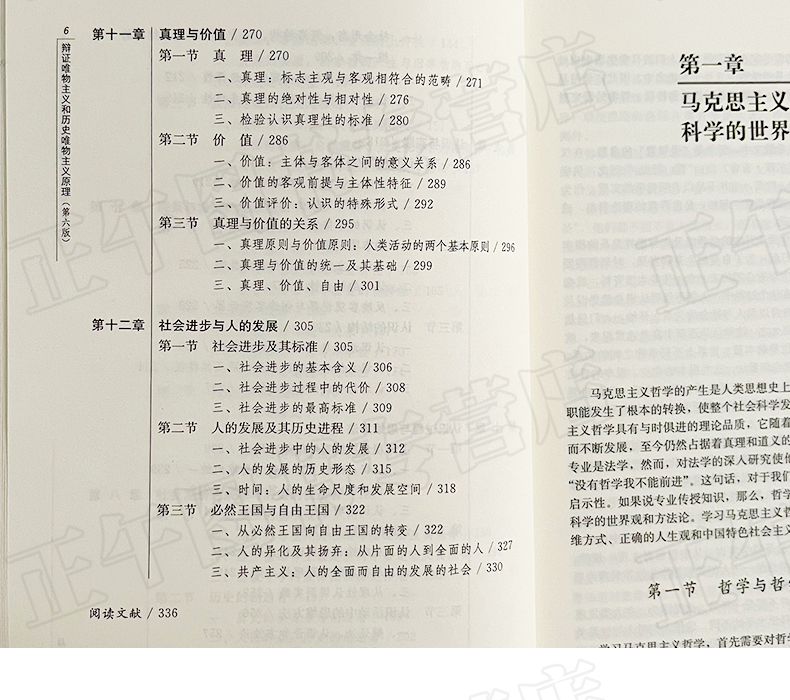 6
辩证唯物主义和历史唯物主义原理(第六版)
第十一章 真理与价值 / 270
第一节 真 理 / 270
一、真理:标志主观与客观相符合的范畴 / 271
二、真理的绝对性与相对性 / 276
三、检验认识真理性的标准 / 280
第二节 价 值 / 286
一、价值:主体与客体之间的意义关系 / 286
二、价值的客观前提与主体性特征 / 289
三、价值评价:认识的特殊形式 / 292
第三节 真理与价值的关系 / 295
一、真理原则与价值原则:人类活动的两个基本原则 / 296
二、真理与价值的统一及其基础 / 299
三、真理、价值、自由 / 301
第十二章 社会进步与人的发展 / 305
第一节 社会进步及其标准 / 305
一、社会进步的基本含义 / 306
二、社会进步过程中的代价 / 308
三、社会进步的最高标准 / 309
第二节 人的发展及其历史进程 / 311
一、社会进步中的人的发展 / 312
二、人的发展的历史形态 / 315
三、时间:人的生命尺度和发展空间 / 318
第三节 必然王国与自由王国 / 322
一、从必然王国向自由王国的转变 / 322
二、人的异化及其扬弃:从片面的人到全面的人 / 327
三、共产主义:人的全面而自由的发展的社会 / 330
阅读文献 / 336
第一章
马克思主义
科学的世界
马克思主义哲学的产生是人类思想史上
职能发生了根本的转换,使整个社会科学发
主义哲学具有与时俱进的理论品质,它随着
而不断发展,至今仍然占据着真理和道义的
专业是法学,然而,对法学的深入研究使他
“没有哲学我不能前进”。这句话,对于我们
启示性。如果说专业传授知识,那么,哲学
科学的世界观和方法论。学习马克思主义哲
维方式、正确的人生观和中国特色社会主义
第一节 哲学与哲
学习马克思主义哲学,首先需要对哲学